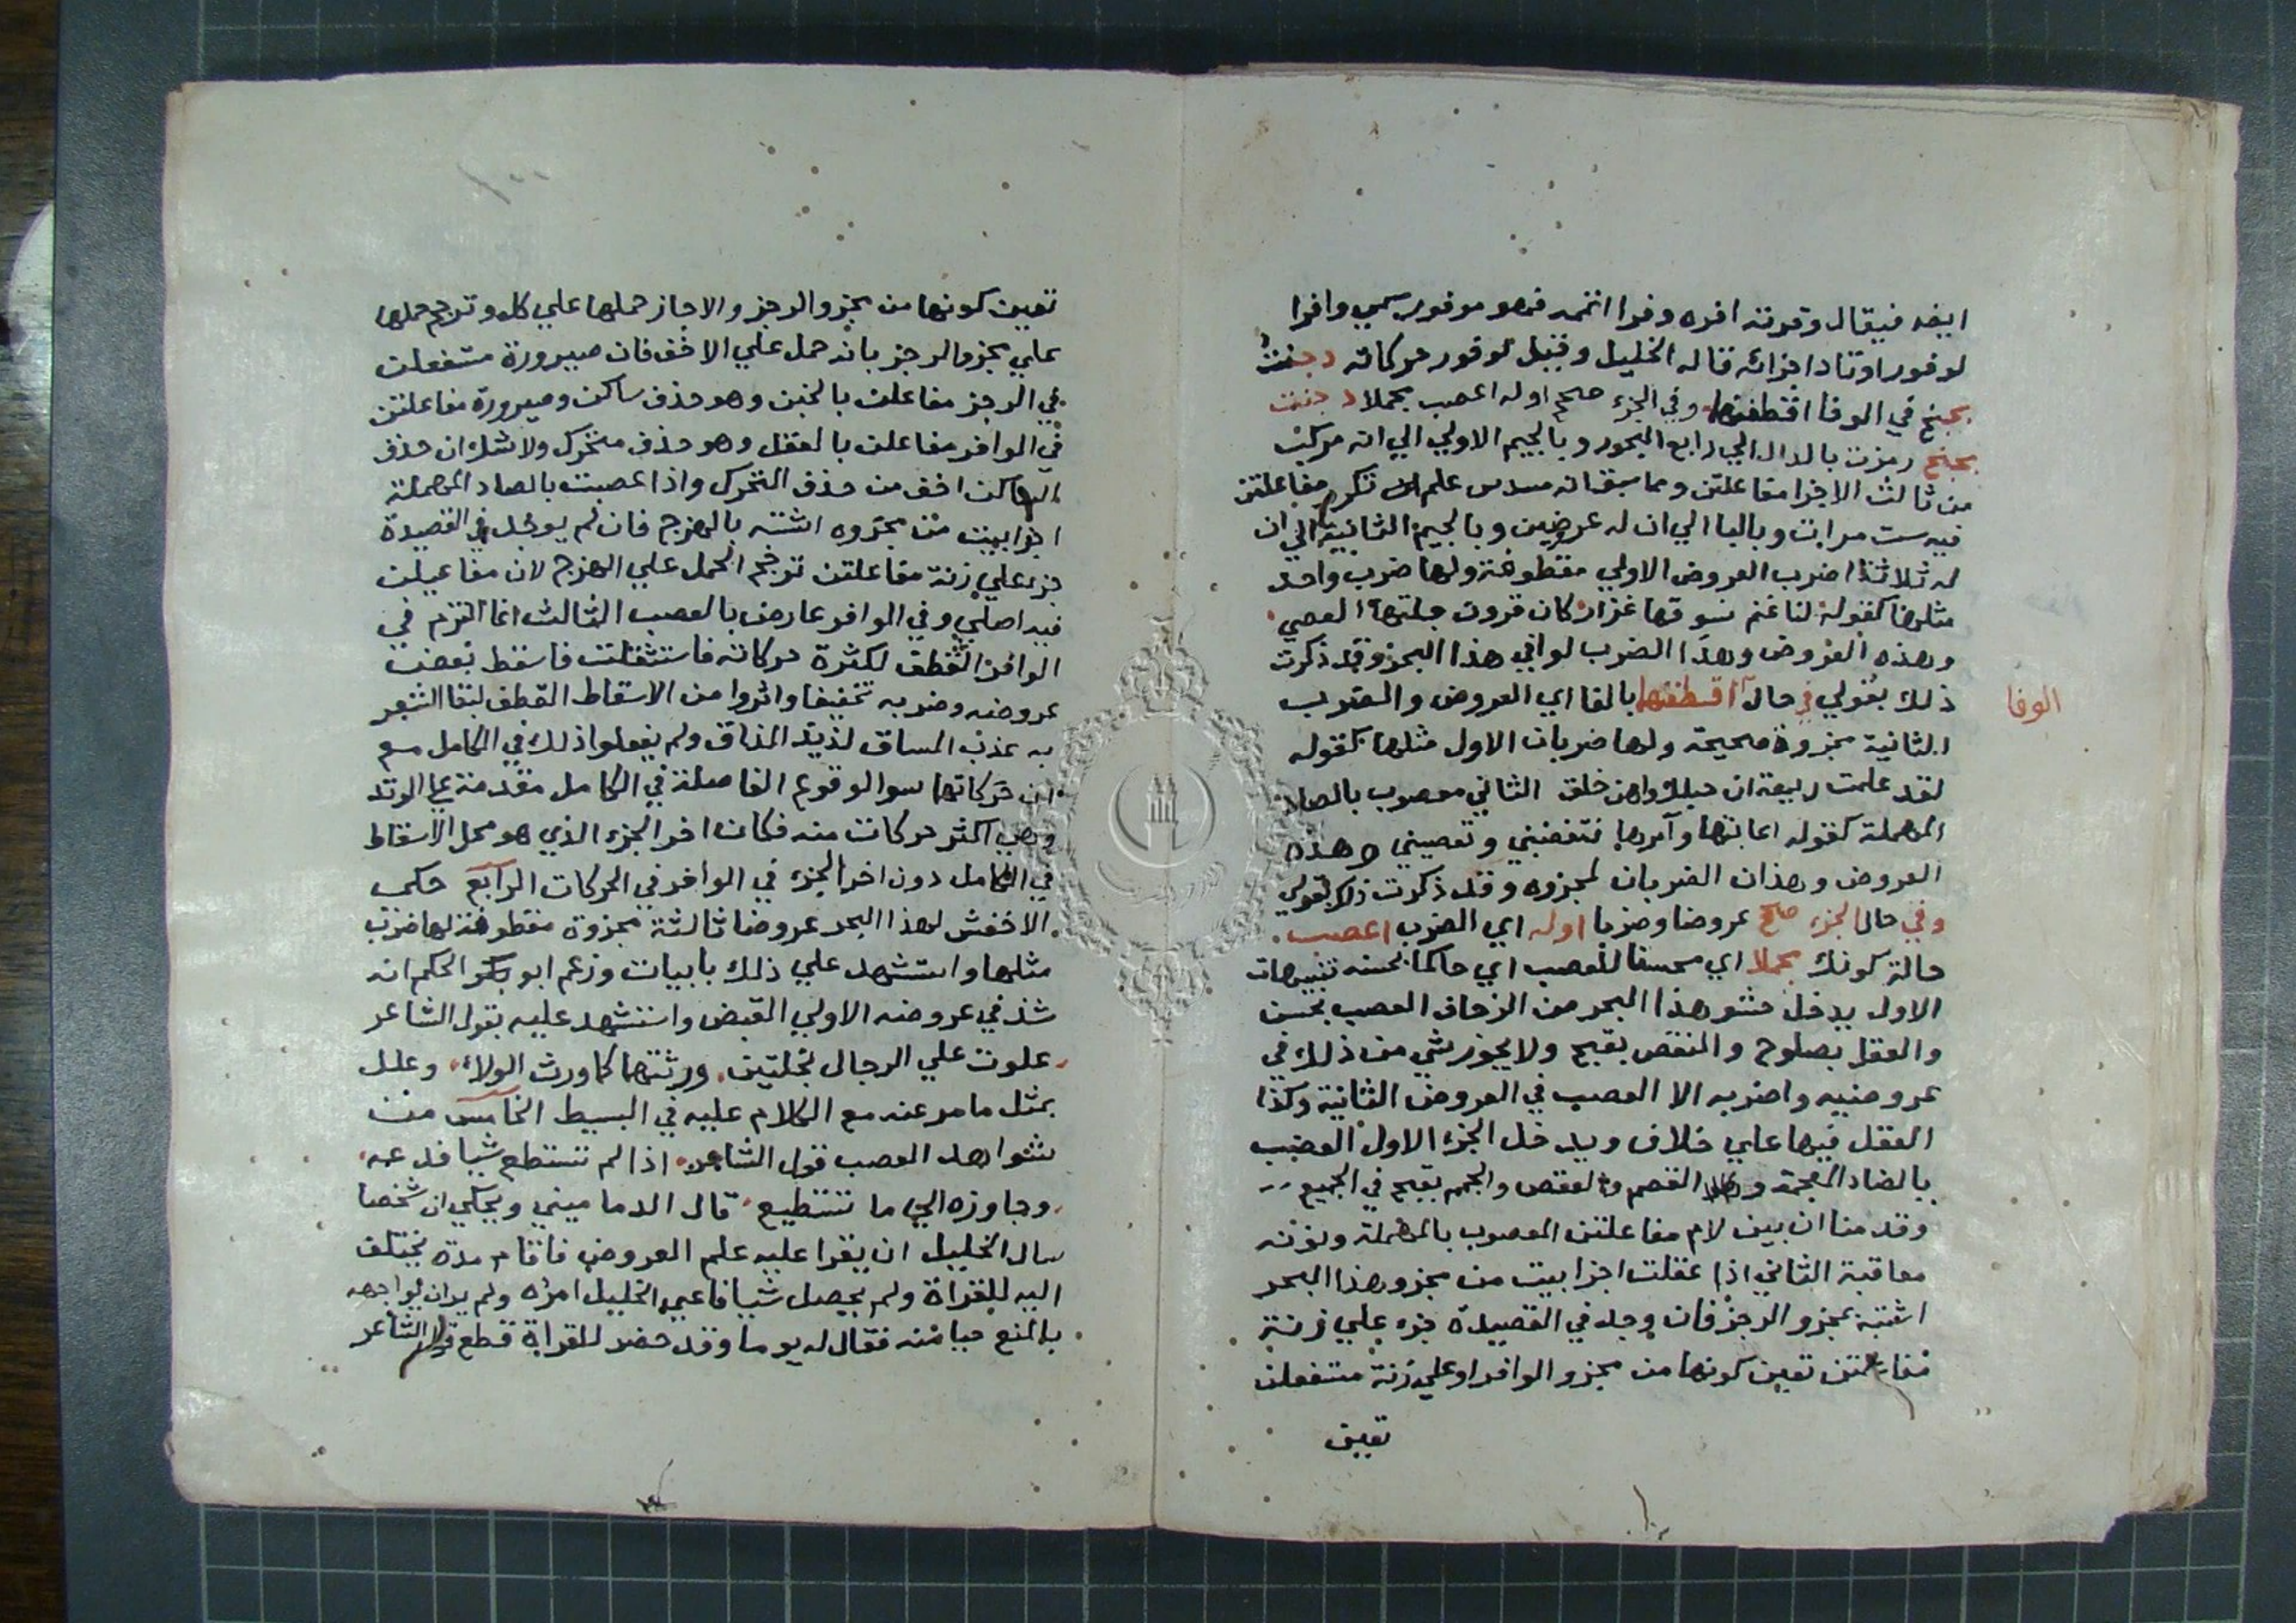 ايفه فيقال وفرته افره وفرا اتممه فهو موفور سمي وافرا
لوفور اوتاد اجزائه قاله الخليل وقيل لوفور حركاته دجنت
بجبح في الوفا اقطفنها وفي الجزء صحح اوله اعصب مجملا دجنت
بجبح رمزت بالدال الي رابع البحور وبالجيم الاولي الي انه مركب
من ثالث الاجزا مفاعلتن ومما سبق انه مسدس علم ان تكرر مفاعلتن
فيه ست مرات وبالبا الي ان له عروضين وبالجيم الثانية الي ان
له ثلاثة اضرب العروض الاولي مقطوفة ولها ضرب واحد
مثلها كقوله لنا غنم نسوقها غزار كان قرون جلتها العصي
وهذه العروض وهذا الضرب لوافي هذا البحر وقد ذكرت
ذلك بقولي في حال اقطفنها بالفا اي العروض والضرب
الوفا
الثانية مجزوة صحيحة ولها ضربان الاول مثلها كقوله
لقد علمت ربيعة ان حبلك واهن خلق الثاني معصوب بالصاد
المهملة كقوله اعاتبها وآمرها فتغضبني وتعصيني وهذه
العروض وهذان الضربان لمجزوه وقد ذكرت ذلك بقولي
وفي حال الجزء صحح عروضا وضربا اوله اي الضرب اعصب
حالة كونك مجملا اي محسنا للعصب اي حاكما بحسنه تنبيهات
الاول يدخل حشو هذا البحر من الزحاف العصب بحسن
والعقل بصلوح والنقص بقبح ولا يجوز شي من ذلك في
عروضيه واضربه الا العصب في العروض الثانية وكذا
العقل فيها علي خلاف ويدخل الجزء الاول العضب
بالضاد المعجمة والقصم والعقص والجمم بقبح في الجميع
وقدمنا ان بين لام مفاعلتن المعصوب بالمهملة ونونه
معاقبة الثاني اذا عقلت اجزا بيت من مجزو هذا البحر
اشتبه بمجزو الرجز فان وجد في القصيدة جزء علي زنة
مفاعلتن تعين كونها من مجزو الوافر او علي زنة مستفعلن
تعين
تعين كونها من مجزو الرجز والا جاز حملها علي كل وترجح حملها
علي مجزو الرجز بانه حمل علي الاخف فان صيرورة مستفعلن
في الرجز مفاعلن بالخبن وهو حذف ساكن وصيرورة مفاعلتن
في الوافر مفاعلن بالعقل وهو حذف متحرك ولا شك ان حذف
الساكن اخف من حذف المتحرك واذا عصبت بالصاد المهملة
اجزا بيت من مجزوه اشتبه بالهزج فان لم يوجد في القصيدة
جزء علي زنة مفاعلتن ترجح الحمل علي الهزج لان مفاعيلن
فيه اصلي وفي الوافر عارض بالعصب الثالث انما التزم في
الوافر القطف لكثرة حركاته فاستثقلت فاسقط بعض
عروضه وضربه تخفيفا واثروا من الاسقاط القطف لبقا الشعر
به عذب المساق لذيذ المذاق ولم يفعلوا ذلك في الكامل مع
ان حركاتها سوا لوقوع الفاصلة في الكامل مقدمة علي الوتد
وهي اكثر حركات منه فكان اخر الجزء الذي هو محل الاسقاط
في الكامل دون اخر الجزء في الوافر في الحركات الرابع حكي
الاخفش لهذا البحر عروضا ثالثة مجزوة مقطوفة لها ضرب
مثلها واستشهد علي ذلك بابيات وزعم ابو بكر الحكم انه
شذ في عروضه الاولي القبض واستشهد عليه بقول الشاعر
علوت علي الرجال بخلتين ورثتهما كما ورث الولاء وعلل
بمثل ما مر عنه مع الكلام عليه في البسيط الخامس من
شواهد العصب قول الشاعر اذا لم تستطع شيا فدعه
وجاوزه الي ما تستطيع قال الدماميني ويحكي ان شخصا
سال الخليل ان يقرا عليه علم العروض فاقام مدة يختلف
اليه للقراة ولم يحصل شيا فاعيي الخليل امره ولم ير ان يواجهه
بالمنع حيا منه فقال له يوما وقد حضر للقراة قطع قول الشاعر